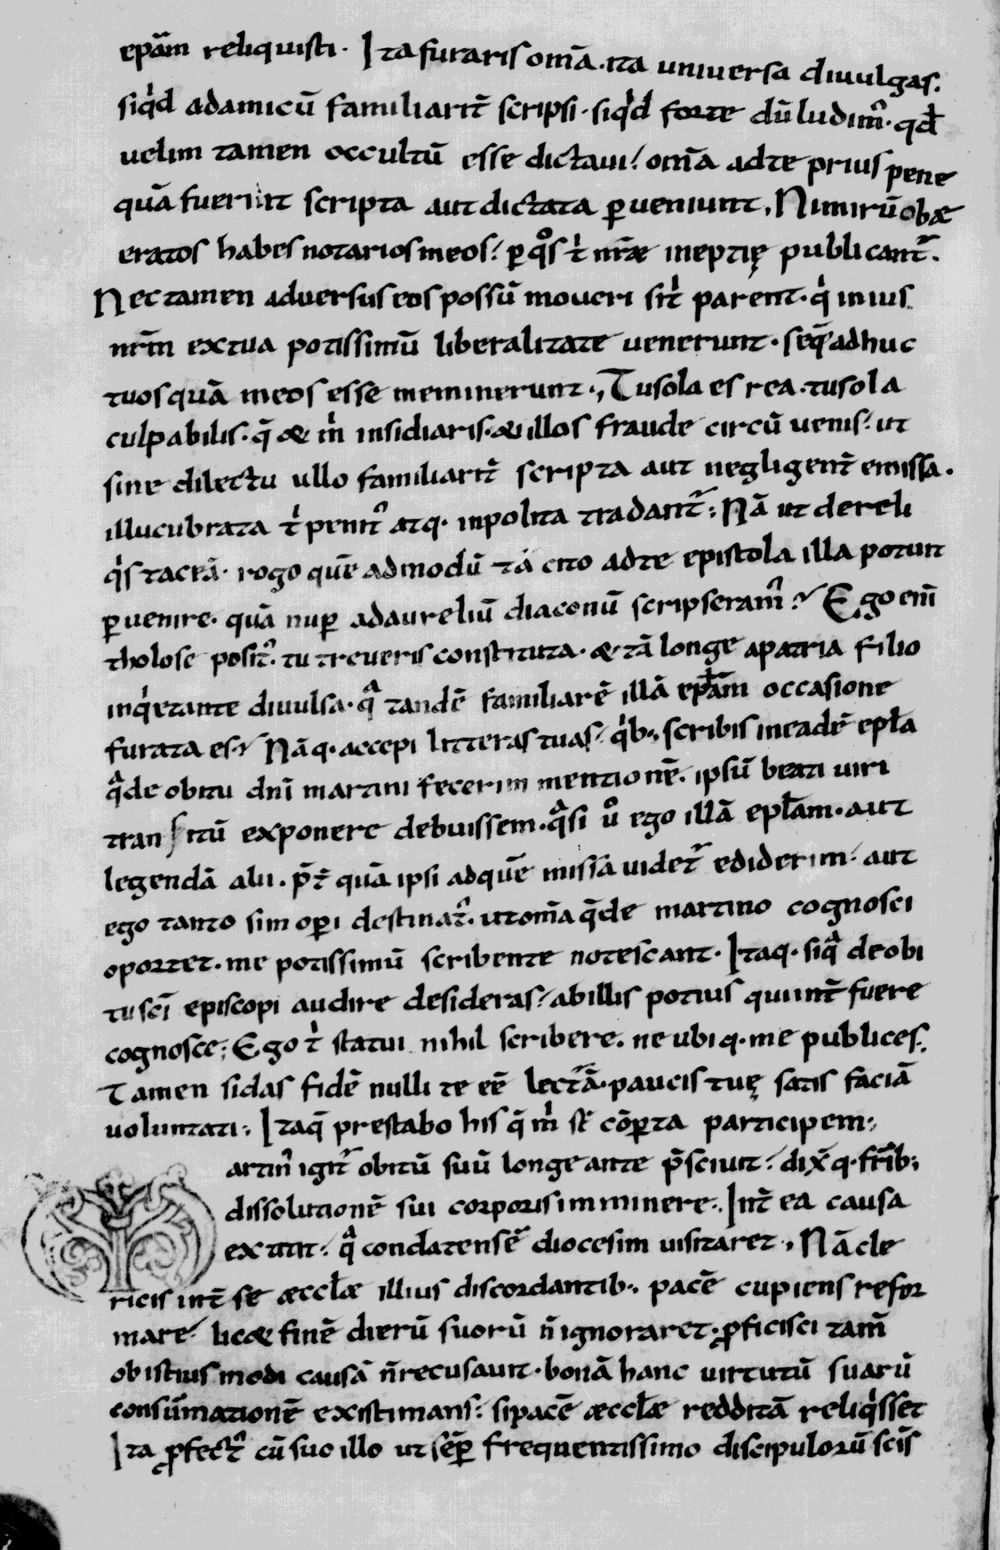 epãm reliquisti. Ita furaris omã. ita universa divulgas.
siq̇d adamicũ familiarit̃ scripsi. siq̇d forte dũ ludim᷒. qđ
uelim tamen occultũ esse dictaui. omã adte prius pene
quã fuerint scripta aut dictata ꝑueniunt. Nimirũ obæ
eratos habes notarios meos. ꝑ q̊s t̉ nr̃æ ineptię publicant᷒.
Nectamen adversus eos possũ moveri sit̉ parent. q̉ inius
nr̃m extua potissimũ liberalitate uenerunt. seq̃ adhuc
tuos quã meos esse meminerunt. Tu sola es rea. tu sola
culpabilis. q̃ & m̉ insidiaris. & illos fraude circũ uenis. ut
sine dilectu ullo familiarit̃ scripta aut negligent̃ emissa.
illucubrata t̉ penit᷒ atq. inpolita tradant᷒. Nã ut dereli
q̉s taceã. rogo quẽadmodũ tã cito adte epistola illa potuit
ꝑuenire. quã nuꝑ adaureliũ diaconũ scripseram᷒. Ego enĩ
tholose posit᷒. tu treueris constituta. & tã longe apatria filio
inq̉etante diuulsa. qᷓ tandẽ familiarẽ illã epłam occasione
furata es. Nãq. accepi litteras tuas. q̉b. scribis ineadẽ epła
qᷓ de obitu dnĩ martini fecerim mentionẽ. ipsũ beati uiri
transitũ exponere debuissem. qᷓsi ů ego illã epłam. aut
legendã alii. p̃t̃ quã ipsi adquẽ missa uidet᷒ ediderim. aut
ego tanto sim oꝑi destinat᷒. ut omã q̃ de martino cognosci
oportet. me potissimũ scribente notescant. Itaq. siqᷓ de obi
tu sci̅ episcopi audire desideras. ab illis potius qui int̃ fuere
cognosce. Ego t̉ statui nihil scribere. ne ubiq. me publices.
Tamen si das fidẽ nulli te eẽ lectᷓã. paucis tuę satis faciã
uoluntati. Itaq̃ prestabo his q̃ m̉ st̃ cõꝑta participem.
artin᷒ igit᷒ obitũ suũ longe ante p̃sciuit. dix̃q. fr̃ib.
dissolutionẽ sui corporis imminere. Int̃ ea causa
extitit. qᷓ condatensẽ diocesim uisitaret. Nã cle
ricis int̃ se æccłæ illius discordantib. pacẽ cupiens refor
mare. lic& finẽ dierũ suorũ ñ ignoraret. ꝓficisci tam̃
ob istius modi causã ñ recusauit. bonã hanc uirtutũ suarũ
consũmationẽ existimans. si pacẽ æccłæ redditã reliq̉sset
Ita ꝓfect᷒ cũ suo illo ut sẽꝑ frequentissimo discipulorũ sci̅s